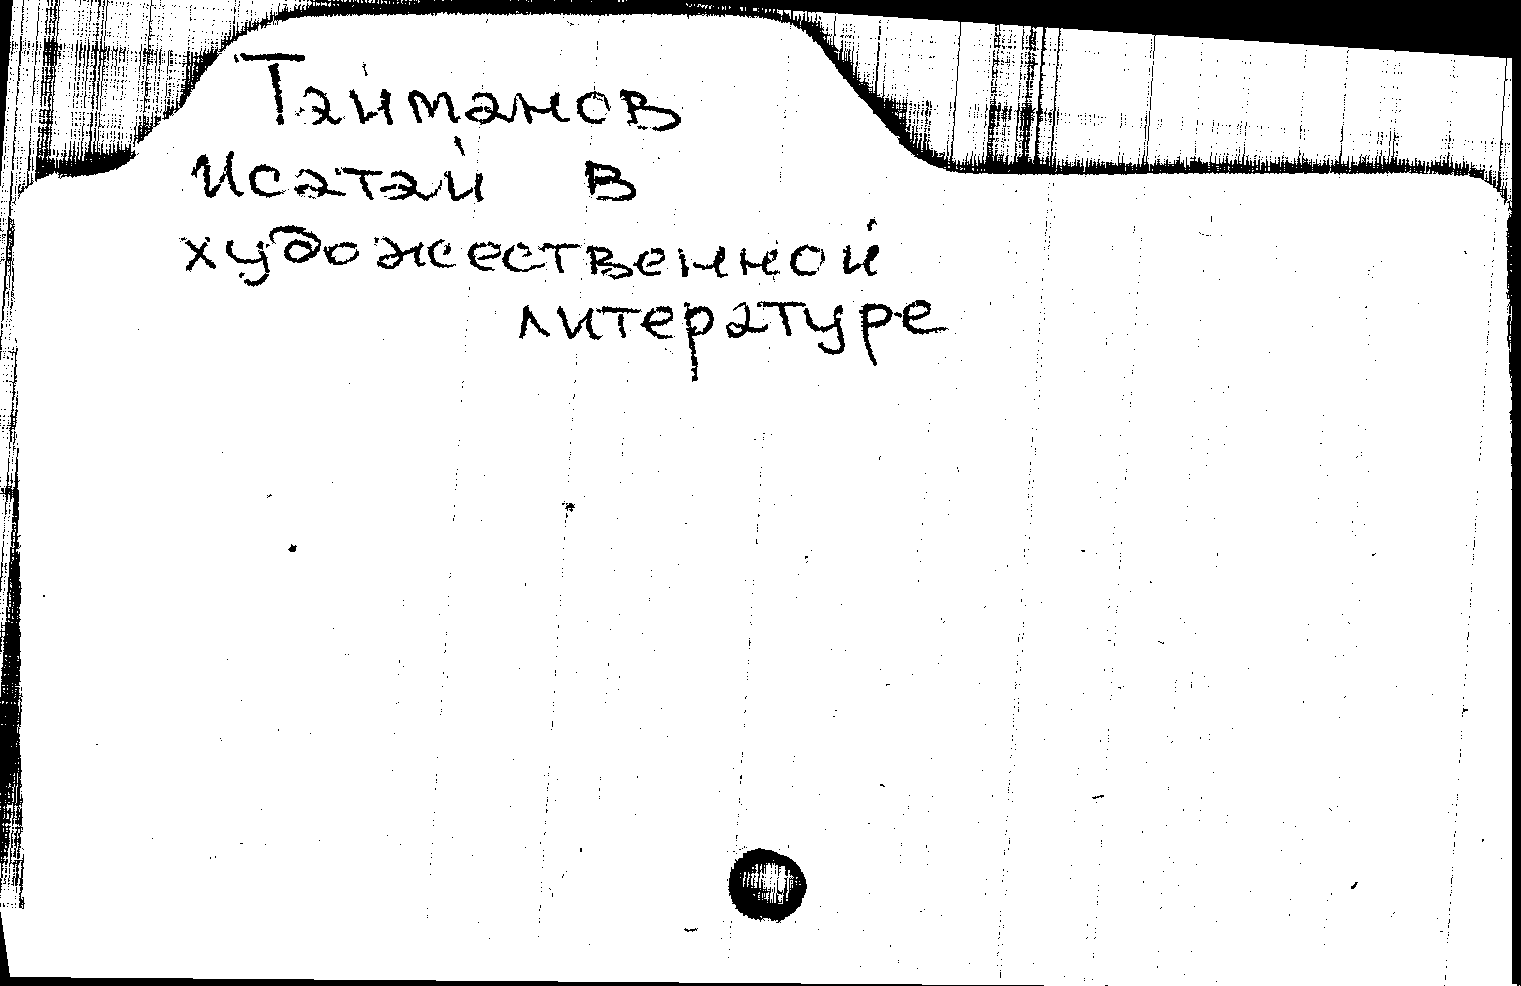 Тайманов
Исатай в
художественной
литературе